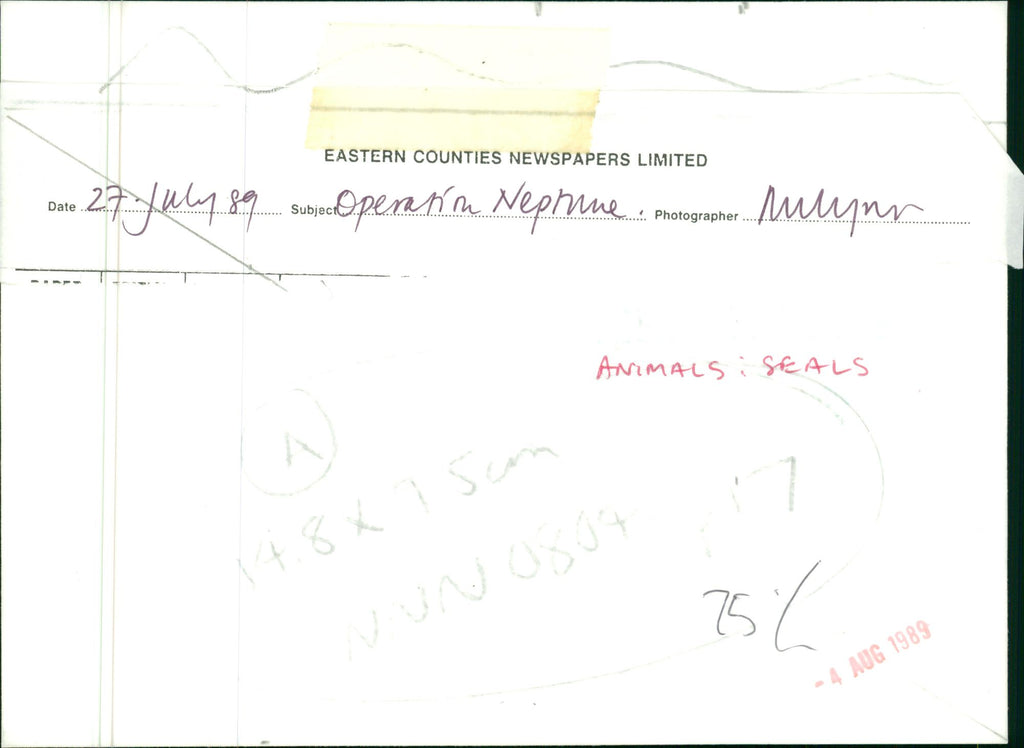 EASTERN COUNTIES NEWSPAPERS LIMITED
Date 27 July 89 Subject Operation Neptune. Photographer
ANIMALS: SEALS
A
14.8 X 7.5cm
17
NUN 0804
75%
-4 AUG 1989